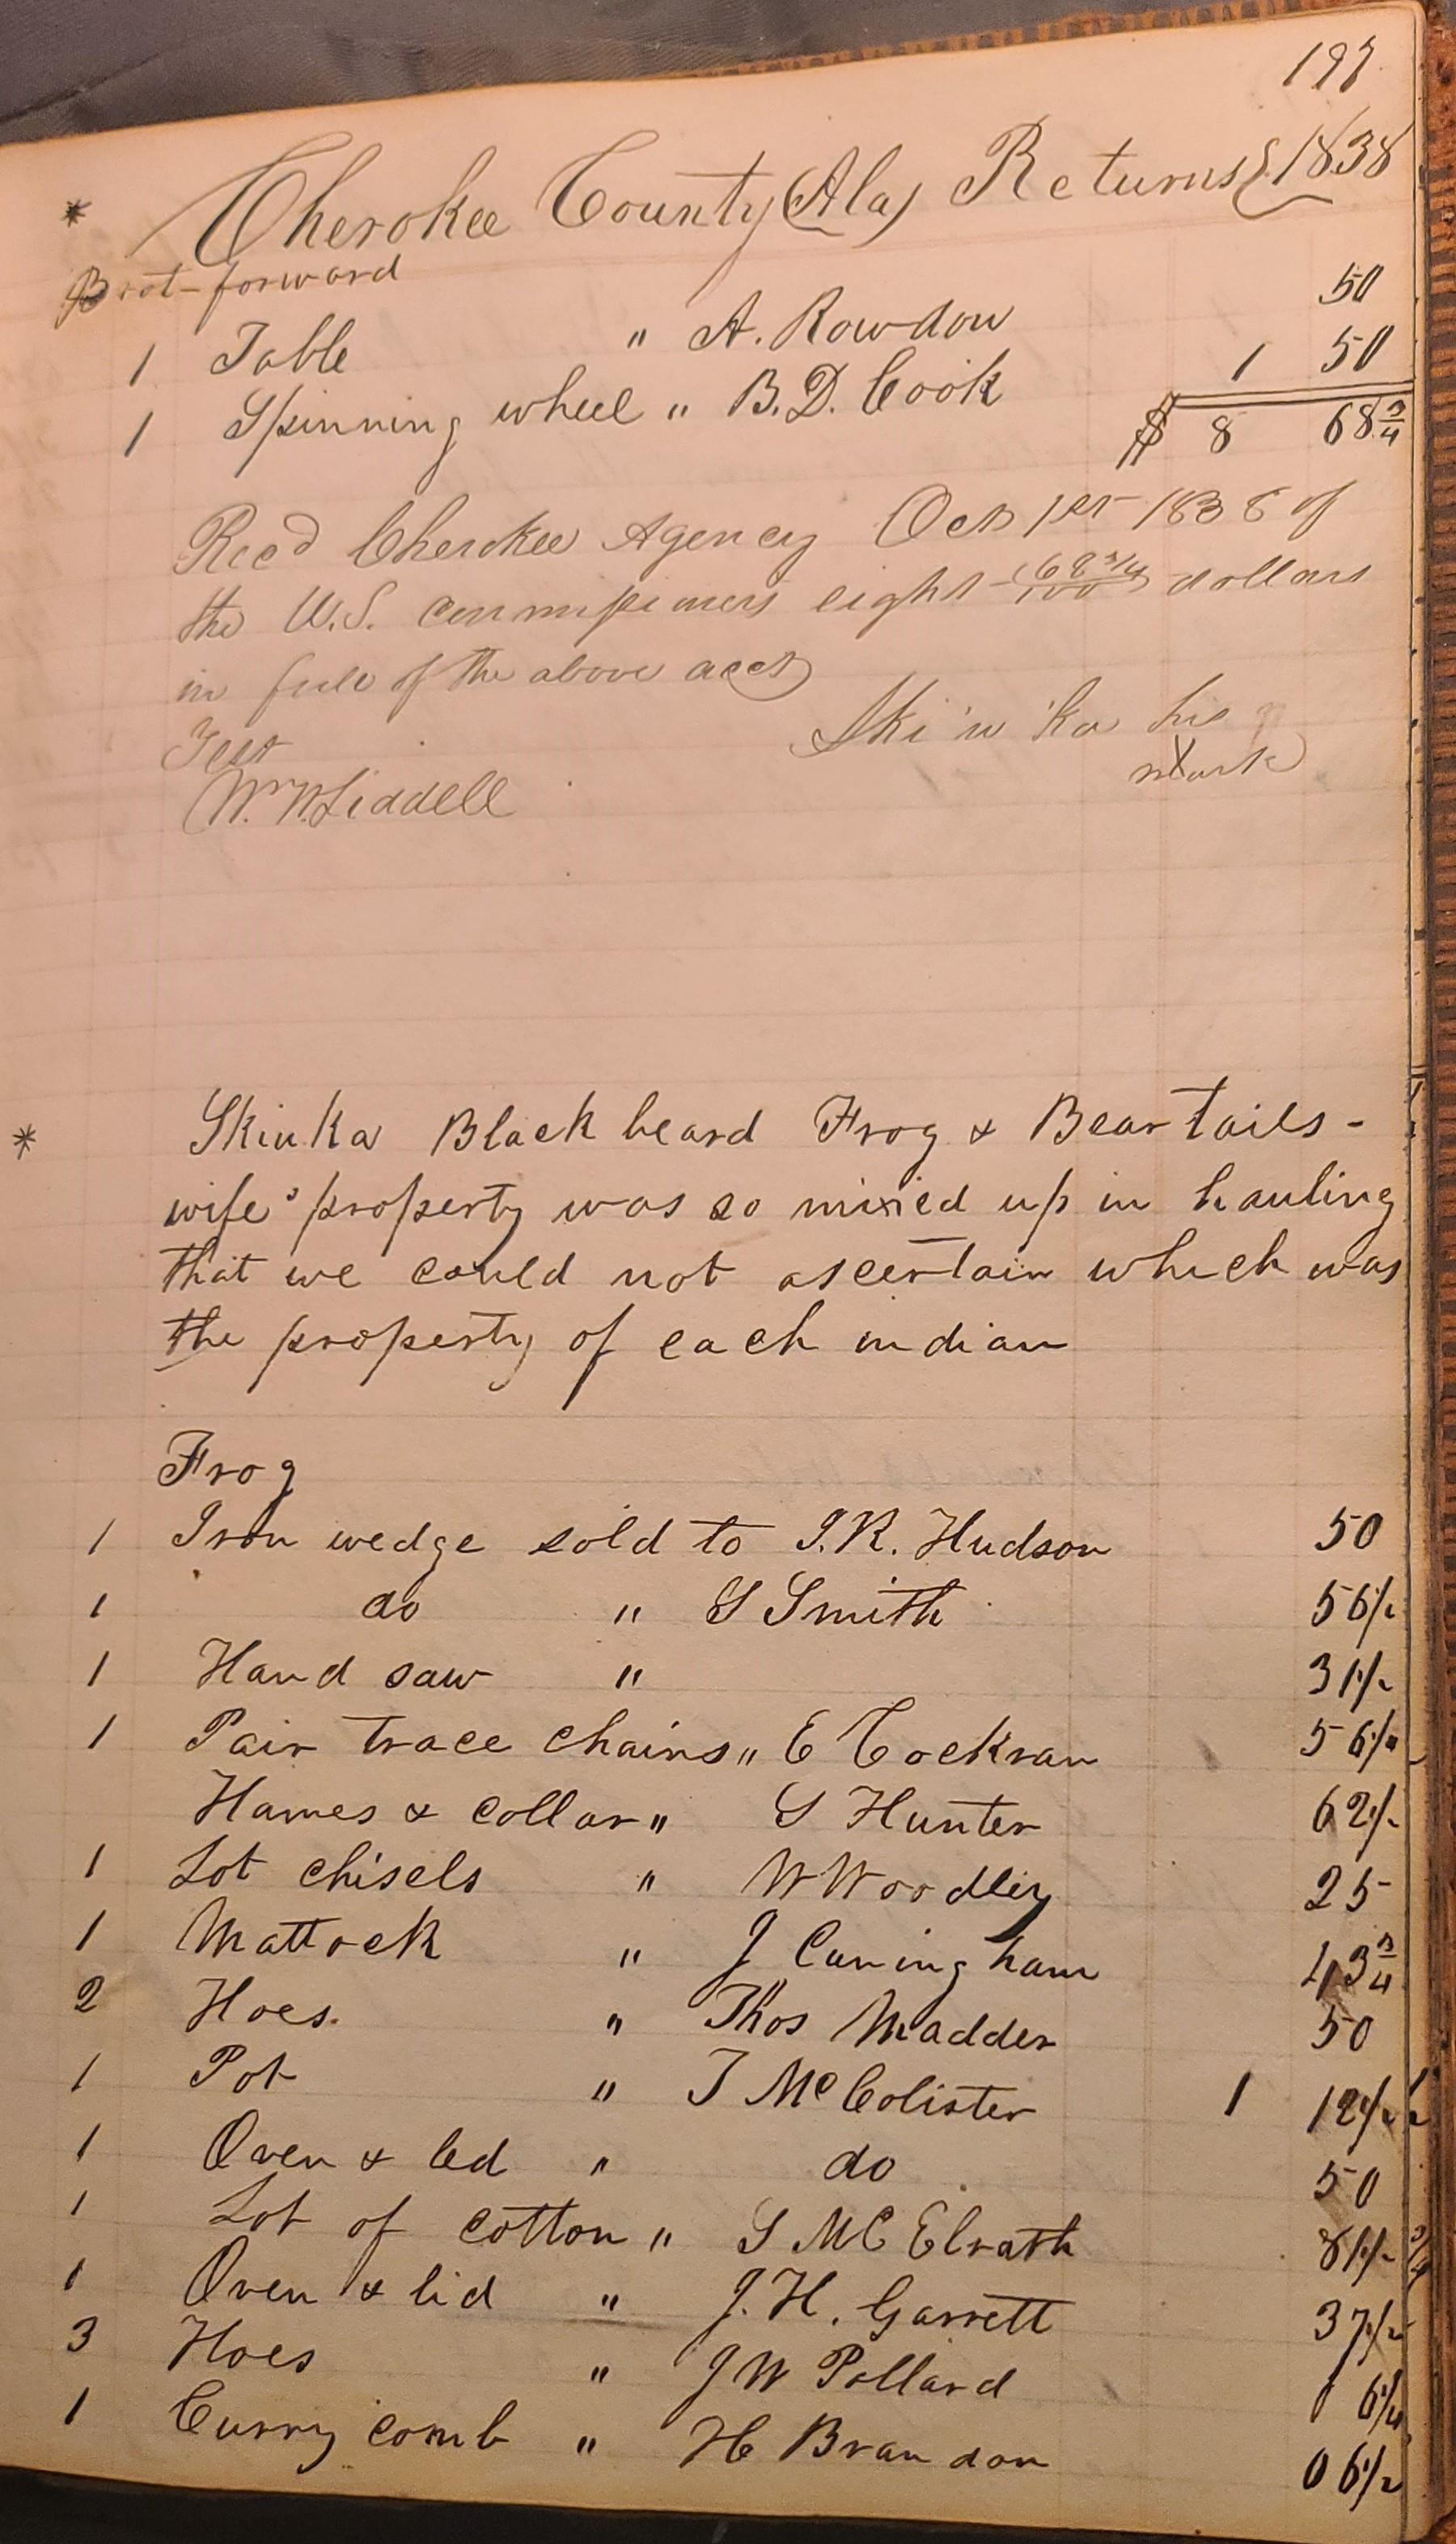 197
* Cherokee County (Ala) Returns 1838
Brot-forward
1 Table " A. Rowdon 50
1 Spinning wheel " B.D. Cook 1 50
$ 8 68 3/4
Recd Cherokee Agency Oct 1st 1838 of
the U.S. commissioners eight (68 3/4/100) dollars
in full of the above acct
Test Ski'n'ka his
X mark
Wm W. Liddell
* Skinka Black beard Frog & Bear tails-
wife's property was so mixied up in hauling
that we could not ascertain which was
the property of each indian
Frog
1 Iron wedge sold to J.R. Hudson 50
1 do " S Smith 56 1/2
1 Hand saw " 31 1/2
1 Pair trace chains " E Cockran 56 1/4
Hames & Collar " S Hunter 62 1/2
1 Lot chisels " W Woodley 25
1 Mattock " J Cuningham 43 3/4
2 Hoes. " Thos Madder 50
1 Pot " J McColister 1 12 1/2
1 Oven & led " do 50
1 Lot of cotton " S McElrath 81 1/2
1 Oven & lid " J.H. Garrett 37 1/2
3 Hoes " J W Pollard 6 1/4
1 Curry comb " H Brandon 06 1/2